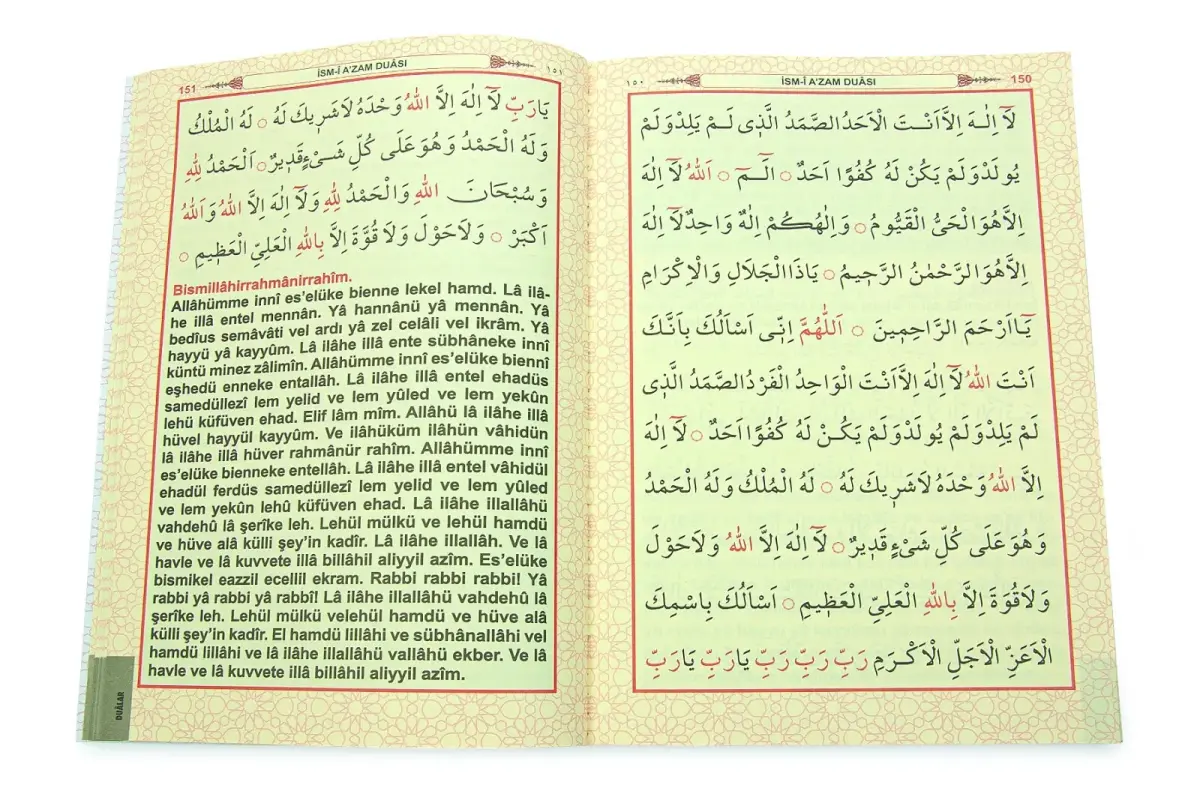 ١٥٠ İSM-İ A'ZAM DUÂSI 150
لَٓا اِلٰهَ اِلَّا اَنْتَ الْاَحَدُ الصَّمَدُ الَّذ۪ى لَمْ يَلِدْ وَلَمْ
يُولَدْ وَلَمْ يَكُنْ لَهُ كُفُوًا اَحَدٌ ۝ الٓمٓ ۝ اَللّٰهُ لَٓا اِلٰهَ
اِلَّا هُوَ الْحَىُّ الْقَيُّومُ ۝ وَاِلٰهُكُمْ اِلٰهٌ وَاحِدٌ لَٓا اِلٰهَ
اِلَّا هُوَ الرَّحْمٰنُ الرَّح۪يمُ ۝ يَاذَا الْجَلَالِ وَالْاِكْرَامِ
يَٓا اَرْحَمَ الرَّاحِم۪ينَ ۝ اَللّٰهُمَّ اِنّ۪ى اَسْاَلُكَ بِاَنَّكَ
اَنْتَ اللّٰهُ لَٓا اِلٰهَ اِلَّا اَنْتَ الْوَاحِدُ الْفَرْدُ الصَّمَدُ الَّذ۪ى
لَمْ يَلِدْ وَلَمْ يُولَدْ وَلَمْ يَكُنْ لَهُ كُفُوًا اَحَدٌ ۝ لَٓا اِلٰهَ
اِلَّا اللّٰهُ وَحْدَهُ لَا شَر۪يكَ لَهُ ۝ لَهُ الْمُلْكُ وَلَهُ الْحَمْدُ
وَهُوَ عَلٰى كُلِّ شَىْءٍ قَد۪يرٌ ۝ لَٓا اِلٰهَ اِلَّا اللّٰهُ وَلَا حَوْلَ
وَلَا قُوَّةَ اِلَّا بِاللّٰهِ الْعَلِىِّ الْعَظ۪يمِ ۝ اَسْاَلُكَ بِاسْمِكَ
الْاَعَزِّ الْاَجَلِّ الْاَكْرَمِ رَبِّ رَبِّ رَبِّ يَارَبِّ يَارَبِّ
151 İSM-İ A'ZAM DUÂSI ١٥١
يَارَبِّ لَٓا اِلٰهَ اِلَّا اللّٰهُ وَحْدَهُ لَا شَر۪يكَ لَهُ ۝ لَهُ الْمُلْكُ
وَلَهُ الْحَمْدُ وَهُوَ عَلٰى كُلِّ شَىْءٍ قَد۪يرٌ ۝ اَلْحَمْدُ لِلّٰهِ
وَسُبْحَانَ اللّٰهِ وَالْحَمْدُ لِلّٰهِ وَلَٓا اِلٰهَ اِلَّا اللّٰهُ وَاللّٰهُ
اَكْبَرُ ۝ وَلَا حَوْلَ وَلَا قُوَّةَ اِلَّا بِاللّٰهِ الْعَلِىِّ الْعَظ۪يمِ ۝
Bismillâhirrahmânirrahîm.
Allâhümme innî es'elüke bienne lekel hamd. Lâ ilâ-
he illâ entel mennân. Yâ hannânü yâ mennân. Yâ
bedîus semâvâti vel ardı yâ zel celâli vel ikrâm. Yâ
hayyü yâ kayyûm. Lâ ilâhe illâ ente sübhâneke innî
küntü minez zâlimîn. Allâhümme innî es'elüke biennî
eşhedü enneke entallâh. Lâ ilâhe illâ entel ehadüs
samedüllezî lem yelid ve lem yûled ve lem yekün
lehü küfüven ehad. Elif lâm mîm. Allâhü lâ ilâhe illâ
hüvel hayyül kayyûm. Ve ilâhüküm ilâhün vâhidün
lâ ilâhe illâ hüver rahmânür rahîm. Allâhümme innî
es'elüke bienneke entellâh. Lâ ilâhe illâ entel vâhidül
ehadül ferdüs samedüllezî lem yelid ve lem yûled
ve lem yekûn lehû küfüven ehad. Lâ ilâhe illallâhü
vahdehû lâ şerîke leh. Lehül mülkü ve lehül hamdü
ve hüve alâ külli şey'in kadîr. Lâ ilâhe illallah. Ve lâ
havle ve lâ kuvvete illâ billâhil aliyyil azîm. Es'elüke
bismikel eazzil ecellil ekram. Rabbi rabbi rabbi! Yâ
rabbi yâ rabbi yâ rabbî! Lâ ilâhe illallâhü vahdehû lâ
şerîke leh. Lehül mülkü velehül hamdü ve hüve alâ
külli şey'in kadîr. El hamdü lillâhi ve sübhânallâhi vel
hamdü lillâhi ve lâ ilâhe illallâhü vallâhü ekber. Ve lâ
havle ve lâ kuvvete illâ billâhil aliyyil azîm.
DUÂLAR